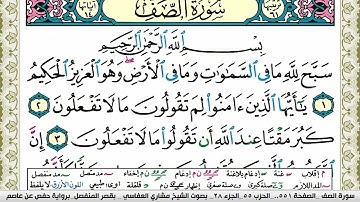 سُورَةُ الصَّفِّ
بِسْمِ اللَّهِ الرَّحْمَٰنِ الرَّحِيمِ
سَبَّحَ لِلَّهِ مَا فِي السَّمَٰوَٰتِ وَمَا فِي الْأَرْضِ وَهُوَ الْعَزِيزُ الْحَكِيمُ
١ يَٰٓأَيُّهَا الَّذِينَ ءَامَنُوا لِمَ تَقُولُونَ مَا لَا تَفْعَلُونَ ٢
كَبُرَ مَقْتًا عِندَ اللَّهِ أَن تَقُولُوا مَا لَا تَفْعَلُونَ ٣ إِنَّ
سورة الصف الصفحة ٥٥١.. الحزب ٥٥ الجزء ٢٨. بصوت الشيخ مشاري العفاسي بقصر المنفصل برواية حفص عن عاصم